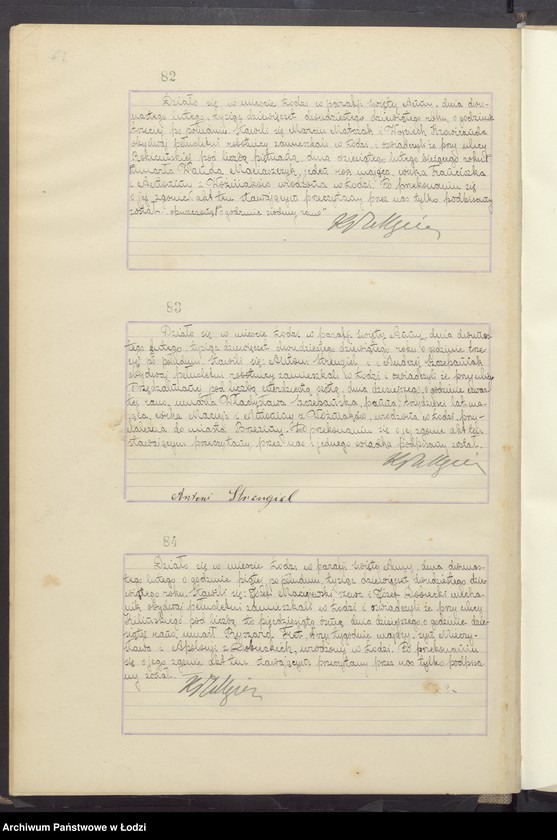 82
Działo się w mieście Łodzi w parafji świętej Anny, dnia dwu-
nastego lutego, tysiąc dziewięćset dwudziestego dziewiątego roku, o godzinie
trzeciej po południu. Stawili się Marcin i Wojciech
obydwaj pełnoletni robotnicy zamieszkali w Łodzi i oświadczyli że przy ulicy
Rokicińskiej pod liczbą piętnastą, dnia dziesiątego lutego bieżącego roku
umarła Wanda jeden rok mająca, córka Franciszka
i Antoniny z Koźmińskich urodzona w Łodzi. Po przekonaniu się
o jej zgonie akt ten stawającym przeczytany przez nas tylko podpisany
został. godzinie siódmej rano"
83
Działo się w mieście Łodzi w parafji świętej Anny, dnia dwunas-
tego lutego, tysiąc dziewięćset dwudziestego dziewiątego roku o godzinie trze-
ciej po południu. Stawili się: Antoni Strengiel i Andrzej Szczepański,
obydwaj pełnoletni robotnicy zamieszkali w Łodzi i oświadczyli że przy ulicy
Przędzalnianej pod liczbą dnia dzisiejszego, o godzinie czwar-
tej rano, umarła Władysława Szczepańska, panna, lat ma-
jąca, córka Macieja i Antoniny z urodzona w Łodzi, przy-
należna do miasta Brzeziny. Po przekonaniu się o jej zgonie akt ten
stawającym przeczytany przez nas i jednego świadka podpisany został.
Antoni Strengiel
84
Działo się w mieście Łodzi w parafji świętej Anny, dnia dwunas-
tego lutego o godzinie piątej po południu, tysiąc dziewięćset dwudziestego dzie-
wiątego roku. Stawili się: Józef i Józef Osowski mecha-
nik obydwaj pełnoletni zamieszkali w Łodzi i oświadczyli że przy ulicy
Kilińskiego pod liczbą dnia dzisiejszego o godzinie dzie-
siątej rano, umarł Ryszard trzy tygodnie mający, syn Mieczy-
sława i Apolonji z urodzony w Łodzi. Po przekonaniu
się o jego zgonie akt ten stawającym przeczytany przez nas tylko podpisa-
ny został.
Archiwum Państwowe w Łodzi